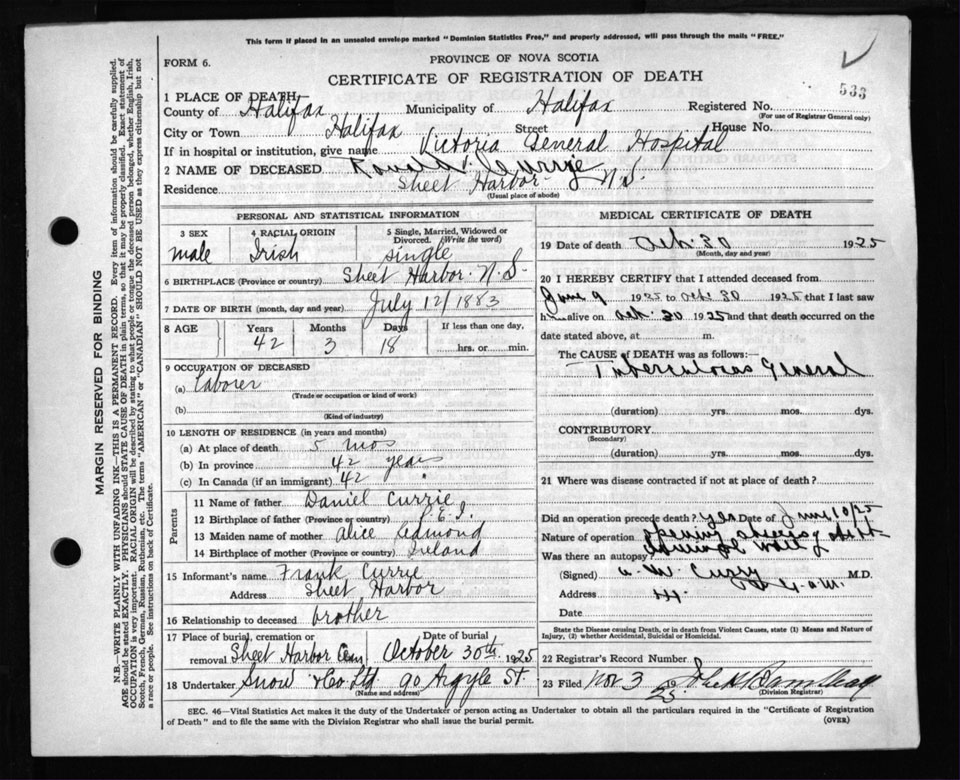 This form if placed in an unsealed envelope marked "Dominion Statistics Free," and properly addressed, will pass through the mails "FREE."
FORM 6.
PROVINCE OF NOVA SCOTIA
CERTIFICATE OF REGISTRATION OF DEATH
533
1 PLACE OF DEATH
County of Halifax Municipality of Halifax Registered No.
(For use of Registrar General only)
City or Town Halifax Street House No.
If in hospital or institution, give name Victoria General Hospital
2 NAME OF DECEASED Ronald Currie
Residence Sheet Harbor N.S.
(Usual place of abode)
MARGIN RESERVED FOR BINDING
N.B.—WRITE PLAINLY WITH UNFADING INK—THIS IS A PERMANENT RECORD. Every item of information should be carefully supplied.
AGE should be stated EXACTLY. PHYSICIANS should STATE CAUSE OF DEATH in plain terms, so that it may be properly classified. Exact statement of
OCCUPATION is very important. RACIAL ORIGIN will be described by stating to what people or tongue the deceased person belonged, whether English, Irish,
Scotch, French, German, Russian, Ruthenian, etc. The terms "AMERICAN" or "CANADIAN" SHOULD NOT BE USED as they express citizenship but not
a race or people. See instructions on back of Certificate.
PERSONAL AND STATISTICAL INFORMATION
3 SEX 4 RACIAL ORIGIN 5 Single, Married, Widowed or
Divorced. (Write the word)
male Irish single
6 BIRTHPLACE (Province or country) Sheet Harbor. N.S-
7 DATE OF BIRTH (month, day and year) July 12/1883
8 AGE Years Months Days If less than one day,
42 3 18 hrs. or min.
9 OCCUPATION OF DECEASED
(a) Laborer
(Trade or occupation or kind of work)
(b)
(Kind of industry)
10 LENGTH OF RESIDENCE (in years and months)
(a) At place of death 5 mos
(b) In province 42 years
(c) In Canada (if an immigrant) 42 "
Parents
11 Name of father Daniel Currie
12 Birthplace of father (Province or country) P.E.I.
13 Maiden name of mother Alice Edmond
14 Birthplace of mother (Province or country) Ireland
15 Informant's name Frank Currie
Address Sheet Harbor
16 Relationship to deceased brother
17 Place of burial, cremation or Date of burial
removal Sheet Harbor Cem October 30th 1925
18 Undertaker Snow & Co Ltd 90 Argyle St.
(Name and address)
MEDICAL CERTIFICATE OF DEATH
19 Date of death Oct. 30 1925
(Month, day and year)
20 I HEREBY CERTIFY that I attended deceased from
June 9 1925 to Oct. 30 1925 that I last saw
h alive on Oct. 30 1925 and that death occurred on the
date stated above, at m.
The CAUSE of DEATH was as follows:—
Tuberculosis General
(duration) yrs. mos. dys.
CONTRIBUTORY
(Secondary)
(duration) yrs. mos. dys.
21 Where was disease contracted if not at place of death?
Did an operation precede death? yes Date of June 10/25
Nature of operation opening abscess of
Was there an autopsy? wall
(Signed) M.D.
Address
Date
State the Disease causing Death, or in death from Violent Causes, state (1) Means and Nature of
Injury, (2) whether Accidental, Suicidal or Homicidal.
22 Registrar's Record Number
23 Filed Nov 3 25
(Division Registrar)
SEC. 46—Vital Statistics Act makes it the duty of the Undertaker or person acting as Undertaker to obtain all the particulars required in the "Certificate of Registration
of Death" and to file the same with the Division Registrar who shall issue the burial permit. (OVER)